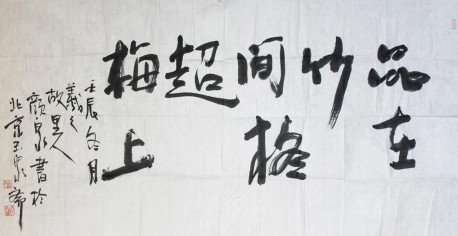 品在
竹
间格
超
梅上
壬辰冬月
羲之故里人
颜泉書於
北京玉泉斋